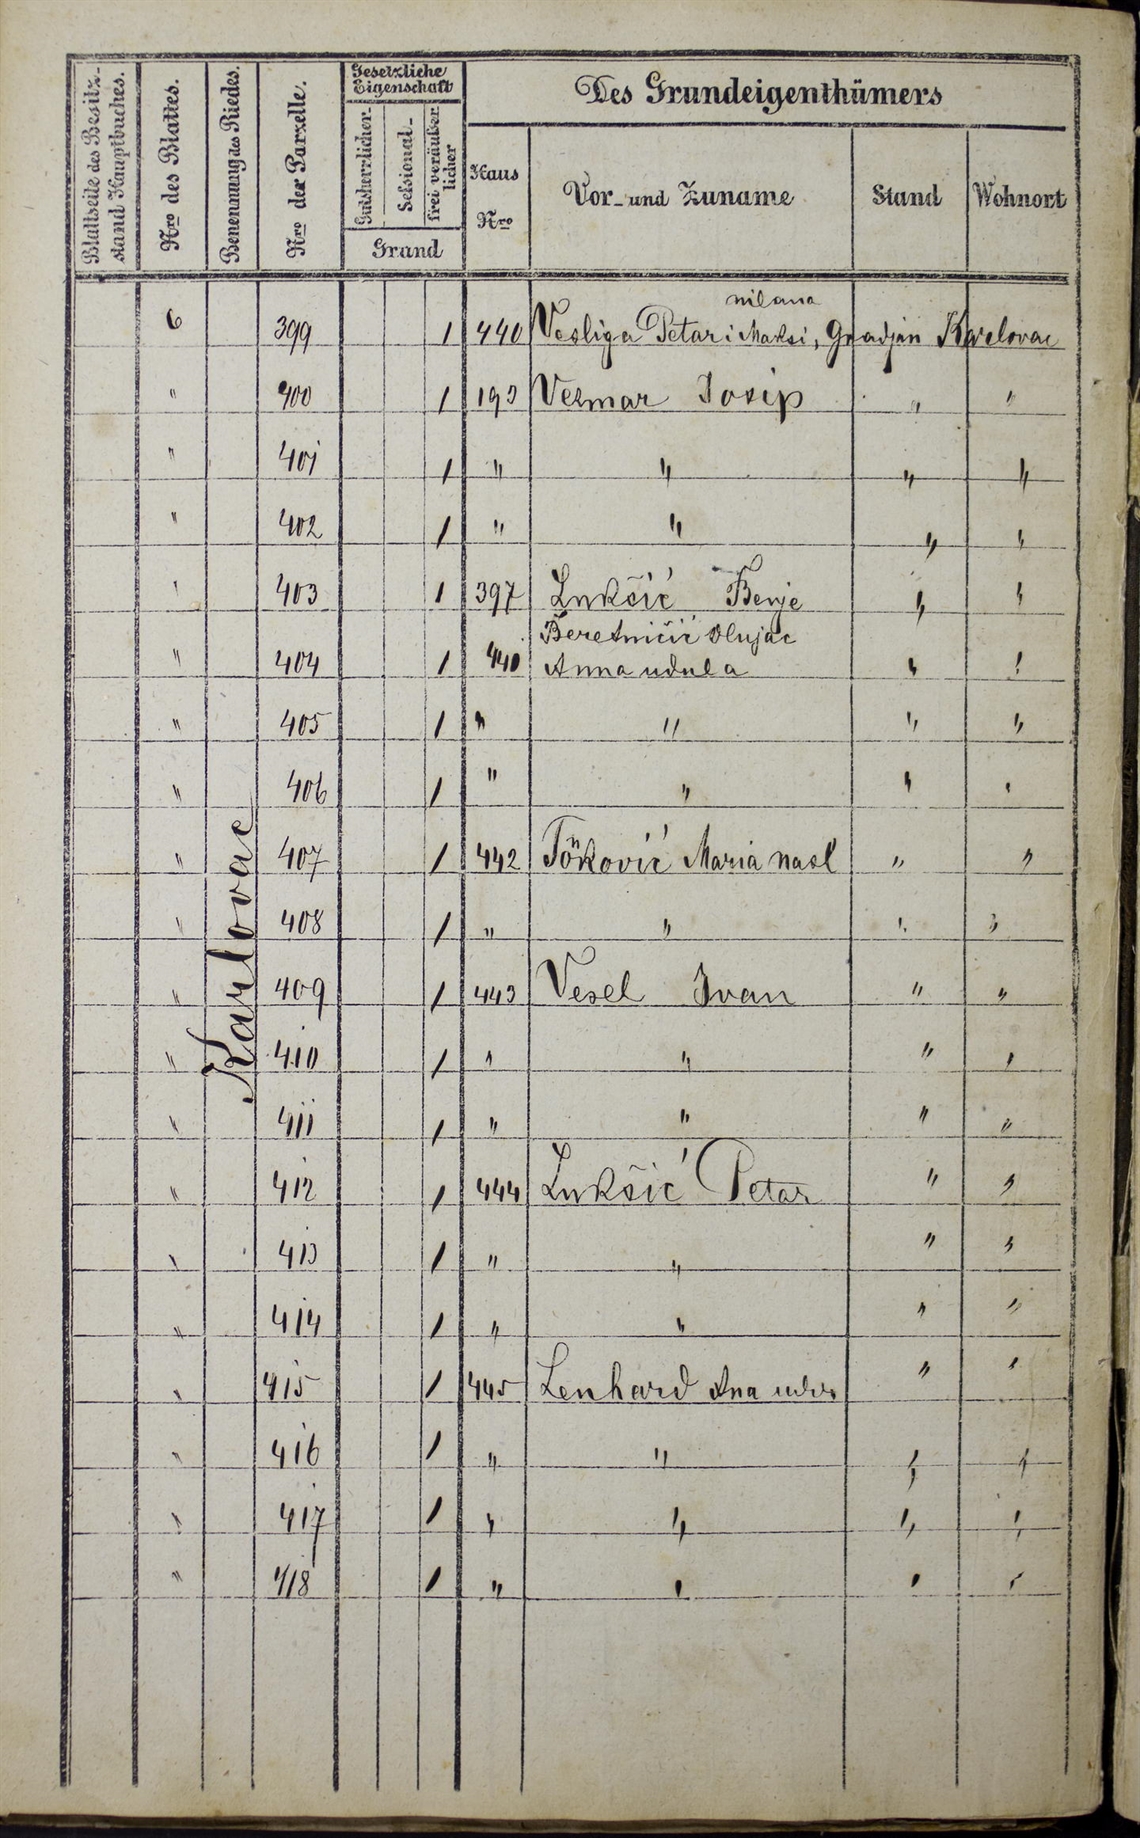 Blattseite des Besitz-
stand Hauptbuches.
Nro des Blattes.
Benennung des Riedes.
Nro der Parzelle.
Gesetzliche
Eigenschaft
Gutsherrlicher
Sessional-
frei veräußer
licher
Grund
Des Grundeigenthümers
Haus
Nro
Vor- und Zuname
Stand
Wohnort
Karlovac
milana
6 399 1 440 Petar i Maksi, Gradjan Karlovac
" 400 1 193 Josip " "
" 401 1 " " " "
" 402 1 " " " "
" 403 1 397 Lukšić " "
Olujac
" 404 1 440 Anna udula " "
" 405 1 " " " "
" 406 1 " " " "
" 407 1 442 Maria nasl " "
" 408 1 " " " "
" 409 1 443 Vesel Ivan " "
" 410 1 " " " "
" 411 1 " " " "
" 412 1 444 Lukšić Petar " "
" 413 1 " " " "
" 414 1 " " " "
" 415 1 445 Lenhard Ana " "
" 416 1 " " " "
" 417 1 " " " "
" 418 1 " " " "